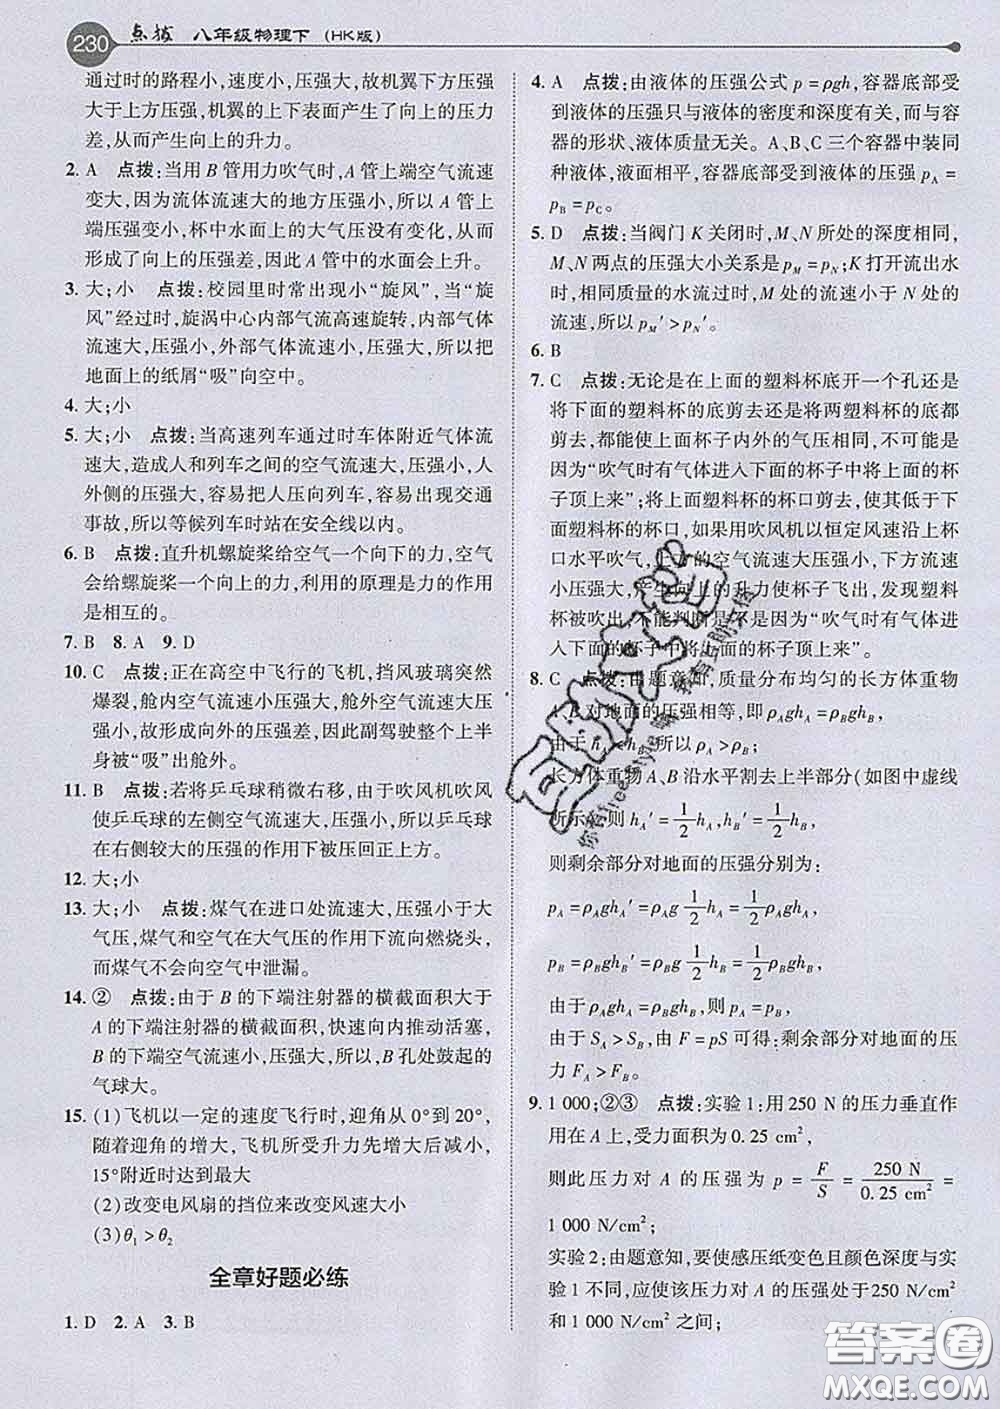 230 点拨 八年级物理下 (HK版)
通过时的路程小,速度小,压强大,故机翼下方压强
大于上方压强,机翼的上下表面产生了向上的压力
差,从而产生向上的升力。
2. A 点拨:当用 B 管用力吹气时,A 管上端空气流速
变大,因为流体流速大的地方压强小,所以 A 管上
端压强变小,杯中水面上的大气压没有变化,从而
形成了向上的压强差,因此 A 管中的水面会上升。
3. 大;小 点拨:校园里时常出现小“旋风”,当“旋
风”经过时,旋涡中心内部气流高速旋转,内部气体
流速大,压强小,外部气体流速小,压强大,所以把
地面上的纸屑“吸”向空中。
4. 大;小
5. 大;小 点拨:当高速列车通过时车体附近气体流
速大,造成人和列车之间的空气流速大,压强小,人
外侧的压强大,容易把人压向列车,容易出现交通
事故,所以等候列车时站在安全线以内。
6. B 点拨:直升机螺旋桨给空气一个向下的力,空气
会给螺旋桨一个向上的力,利用的原理是力的作用
是相互的。
7. B 8. A 9. D
10. C 点拨:正在高空中飞行的飞机,挡风玻璃突然
爆裂,舱内空气流速小压强大,舱外空气流速大压
强小,由于存在压强差,因此副驾驶整个上半
身被“吸”出舱外。
11. B 点拨:若将乒乓球稍微右移,由于吹风机吹风
使乒乓球的左侧空气流速大,压强小,所以乒乓球
在右侧较大的压强的作用下被压回正上方。
12. 大;小
13. 大;小 点拨:煤气在进口处流速大,压强小于大
气压,煤气和空气在大气压的作用下流向燃烧头,
而煤气不会向空气中泄漏。
14. ② 点拨:由于 B 的下端注射器的横截面积大于
A 的下端注射器的横截面积,快速向内推动活塞,
B 的下端空气流速小,压强大,所以,B 孔处鼓起的
气球大。
15. (1)飞机以一定的速度飞行时,迎角从0°到20°,
随着迎角的增大,飞机所受升力先增大后减小,
15°附近时达到最大
(2)改变电风扇的挡位来改变风速大小
(3)θ₁>θ₂
全章好题必练
1. D 2. A 3. B
4. A 点拨:由液体的压强公式 p=ρgh,容器底部受
到液体的压强只与液体的密度和深度有关,而与容
器的形状、液体质量无关。A、B、C 三个容器中装同
种液体,液面相平,容器底部受到液体的压强 p_A=
p_B=p_C。
5. D 点拨:当阀门 K 关闭时,M、N 所处的深度相同,
M、N 两点的压强大小关系是 p_M=p_N;K 打开流出水
时,相同质量的水流过时,M 处的流速小于 N 处的
流速,所以 p_M′>p_N′。
6. B
7. C 点拨:无论是在上面的塑料杯底开一个孔还是
将下面的塑料杯的底剪去还是将两塑料杯的底都
剪去,都能使上面杯子内外的气压相同,不可能是
因为“吹气时有气体进入下面的杯子中将上面的杯
子顶上来”;将上面塑料杯的杯口剪去,使其低于下
面塑料杯的杯口,如果用吹风机以恒定风速沿上杯
口水平吹气,上方的空气流速大压强小,下方流速
小压强大,产生向上的升力使杯子飞出,发现塑料
杯被吹出,不能判断是不是因为“吹气时有气体进
入下面的杯子中将上面的杯子顶上来”。
8. C 点拨:由题意知,质量分布均匀的长方体重物
A、B 对地面的压强相等,即 ρ_A gh_A=ρ_B gh_B,
由于 h_A<h_B,所以 ρ_A>ρ_B;
长方体重物 A、B 沿水平割去上半部分(如图中虚线
所示),则 h_A′=1/2 h_A,h_B′=1/2 h_B,
则剩余部分对地面的压强分别为:
p_A=ρ_A gh_A′=ρ_A g 1/2 h_A=1/2 ρ_A gh_A,
p_B=ρ_B gh_B′=ρ_B g 1/2 h_B=1/2 ρ_B gh_B,
由于 ρ_A gh_A=ρ_B gh_B,则 p_A=p_B,
由于 S_A>S_B,由 F=pS 可得:剩余部分对地面的压
力 F_A>F_B。
9. 1 000;②③ 点拨:实验1:用 250 N 的压力垂直作
用在 A 上,受力面积为0.25 cm²,
则此压力对 A 的压强为 p=F/S=250 N/0.25 cm²=
1 000 N/cm²;
实验2:由题意知,要使感压纸变色且颜色深度与实
验1不同,应使该压力对 A 的压强处于250 N/cm²
和1 000 N/cm² 之间;
答案圈
MXQE.COM